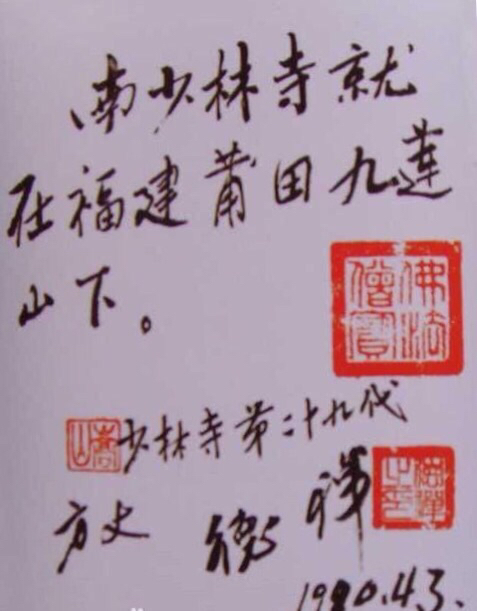 南少林寺就
在福建莆田九莲
山下。
佛法僧寶
嵩山 少林寺第二十九代
方丈 德禅 德禪之印
1990.4.3.